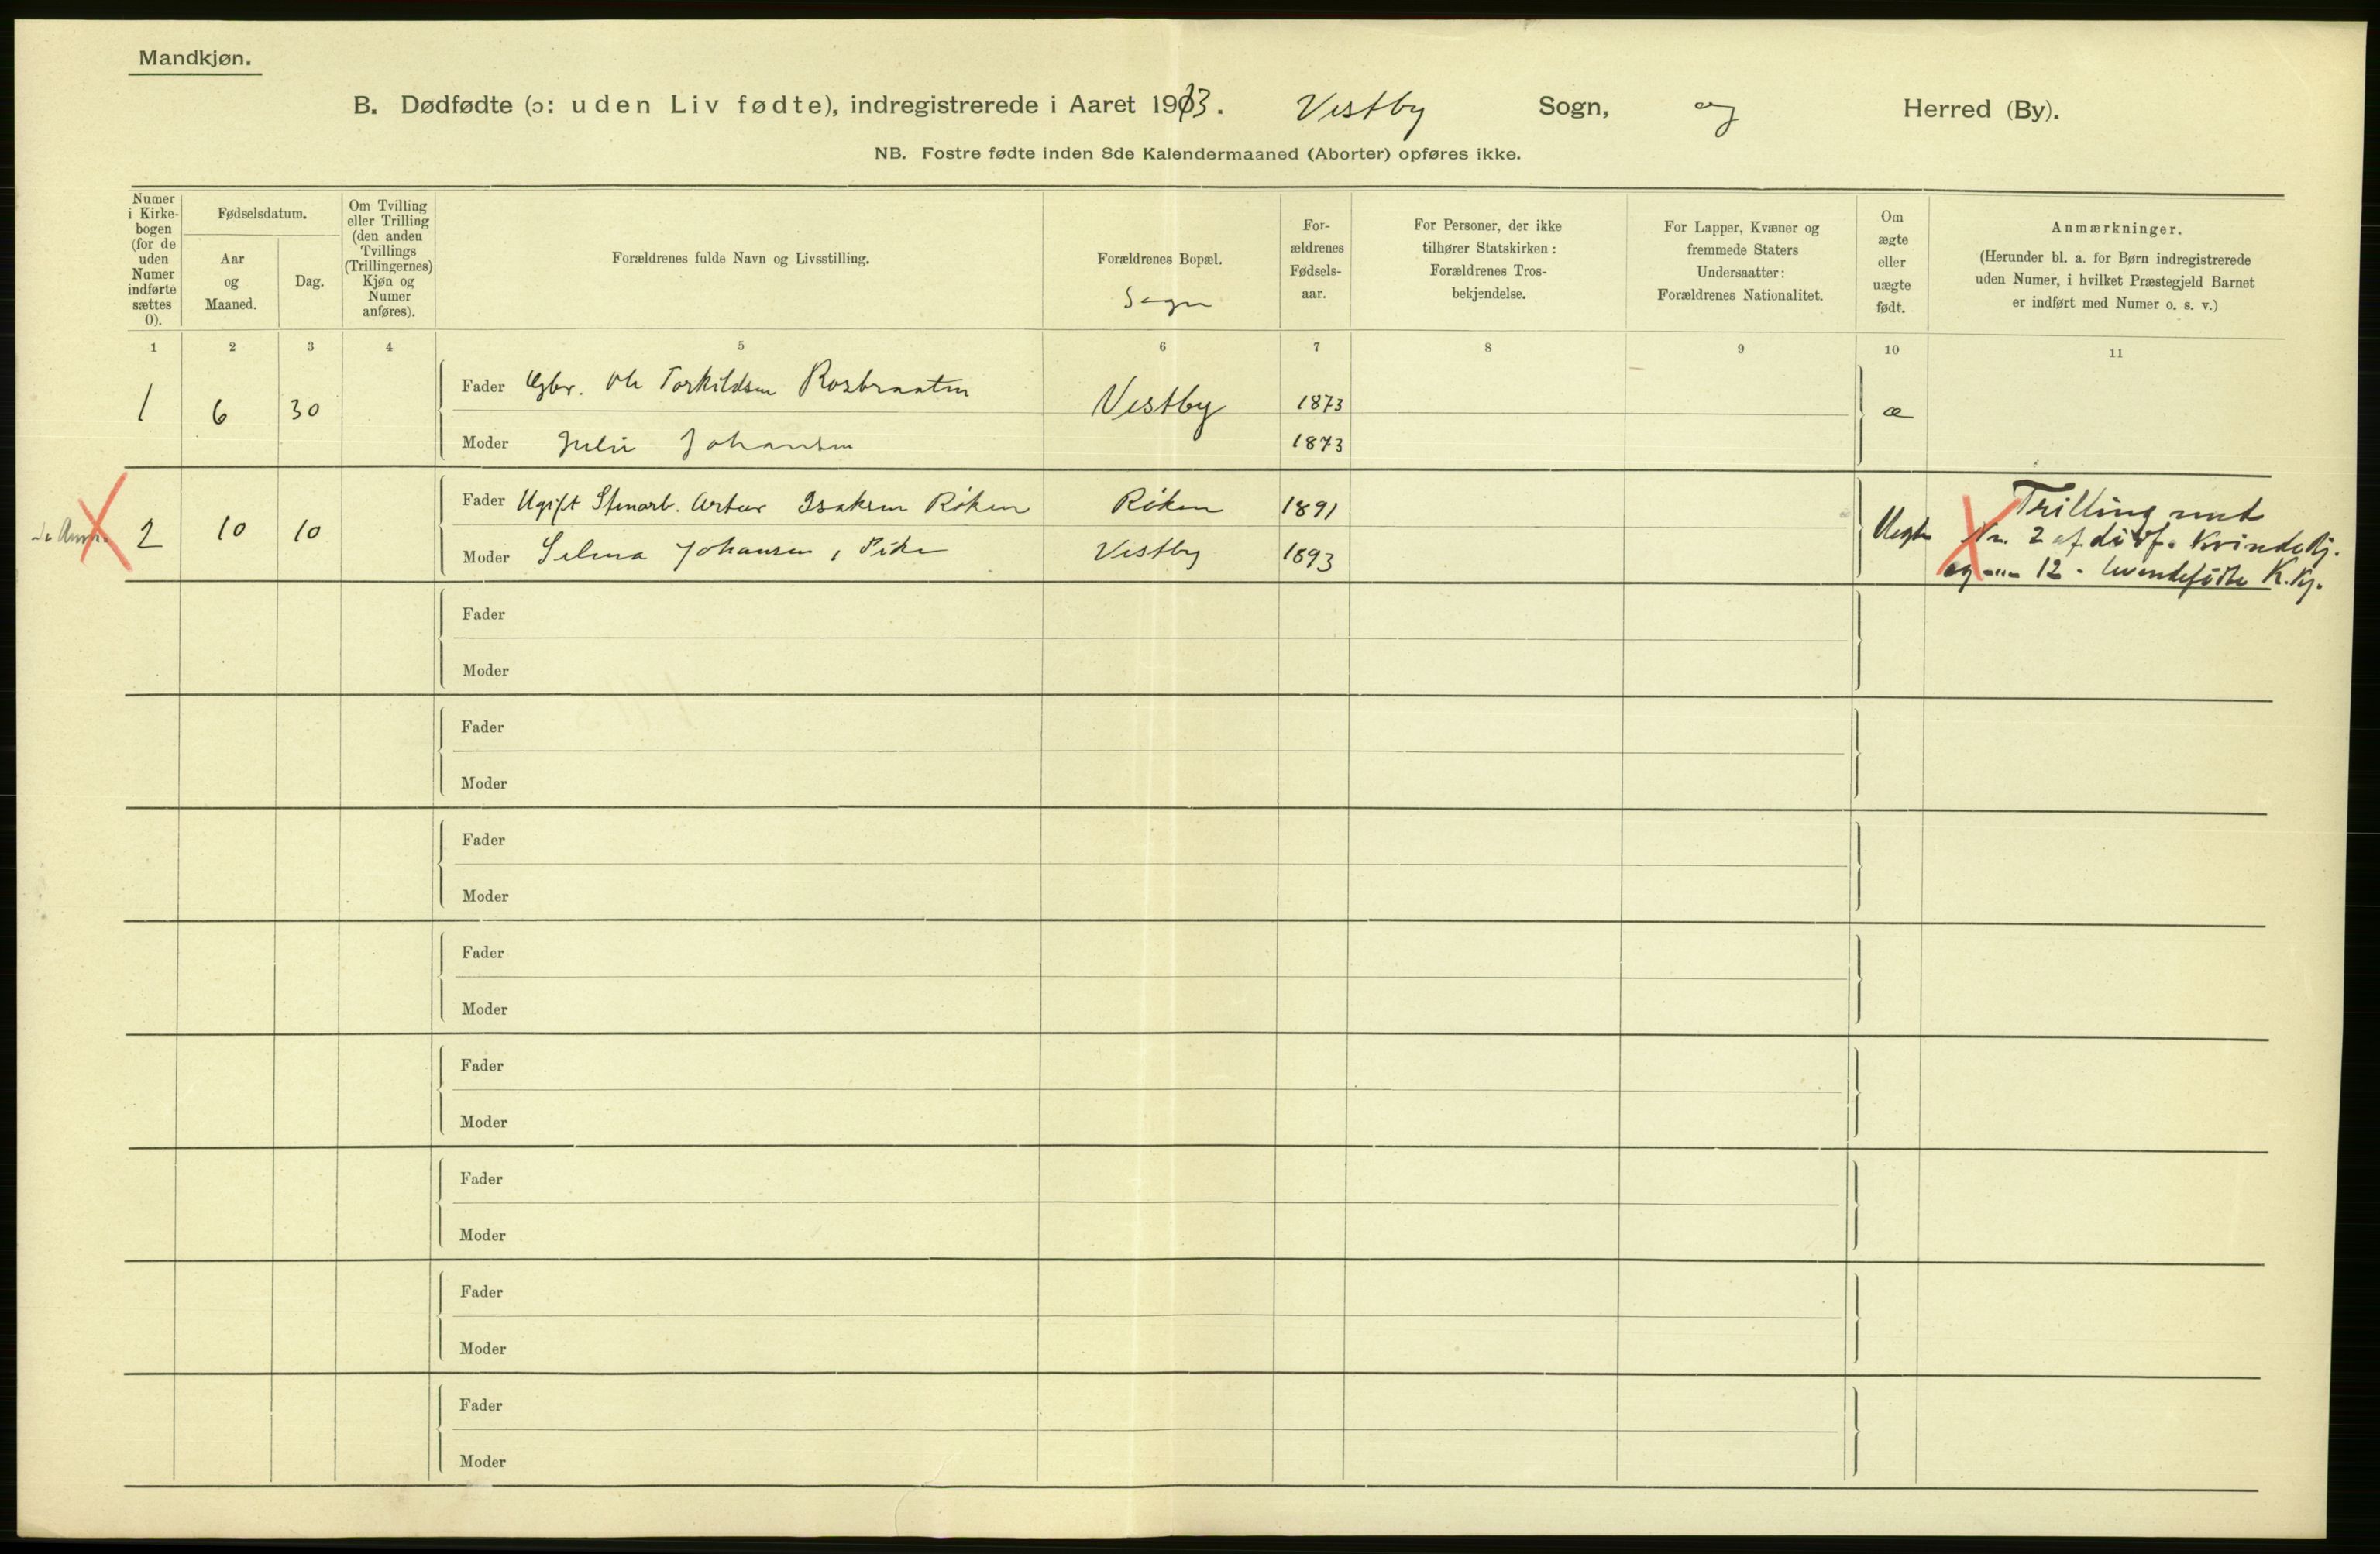 Mandkjøn.
B. Dødfødte (ɔ: uden Liv fødte), indregistrerede i Aaret 1913. Vestby Sogn, og Herred (By).
NB. Fostre fødte inden 8de Kalendermaaned (Aborter) opføres ikke.
Numer
i Kirke-
bogen
(for de
uden
Numer
indførte
sættes
0).
Fødselsdatum.
Aar
og
Maaned.
Dag.
Om Tvilling
eller Trilling
(den anden
Tvillings
(Trillingernes)
Kjøn og
Numer
anføres).
Forældrenes fulde Navn og Livsstilling.
Forældrenes Bopæl.
Sogn
For-
ældrenes
Fødsels-
aar.
For Personer, der ikke
tilhører Statskirken:
Forældrenes Tros-
bekjendelse.
For Lapper, Kvæner og
fremmede Staters
Undersaatter:
Forældrenes Nationalitet.
Om
ægte
eller
uægte
født.
Anmærkninger.
(Herunder bl. a. for Børn indregistrerede
uden Numer, i hvilket Præstegjeld Barnet
er indført med Numer o. s. v.)
1 2 3 4 5 6 7 8 9 10 11
1 6 30 Fader Gbr. Ole Torkildsen Rosbraaten Vestby 1873 æ
Moder Julie Johansen 1873
2 10 10 Fader Ugift Stenarb. Artur Isaksen Röken Röken 1891 Uegte
Moder Selma Johansen, Pike Vestby 1893
Trilling med
Nr. 2 af dödf. Kvindekj.
og -"- 12 - levendefödte K.Kj.
Fader
Moder
Fader
Moder
Fader
Moder
Fader
Moder
Fader
Moder
Fader
Moder
Fader
Moder
Fader
Moder